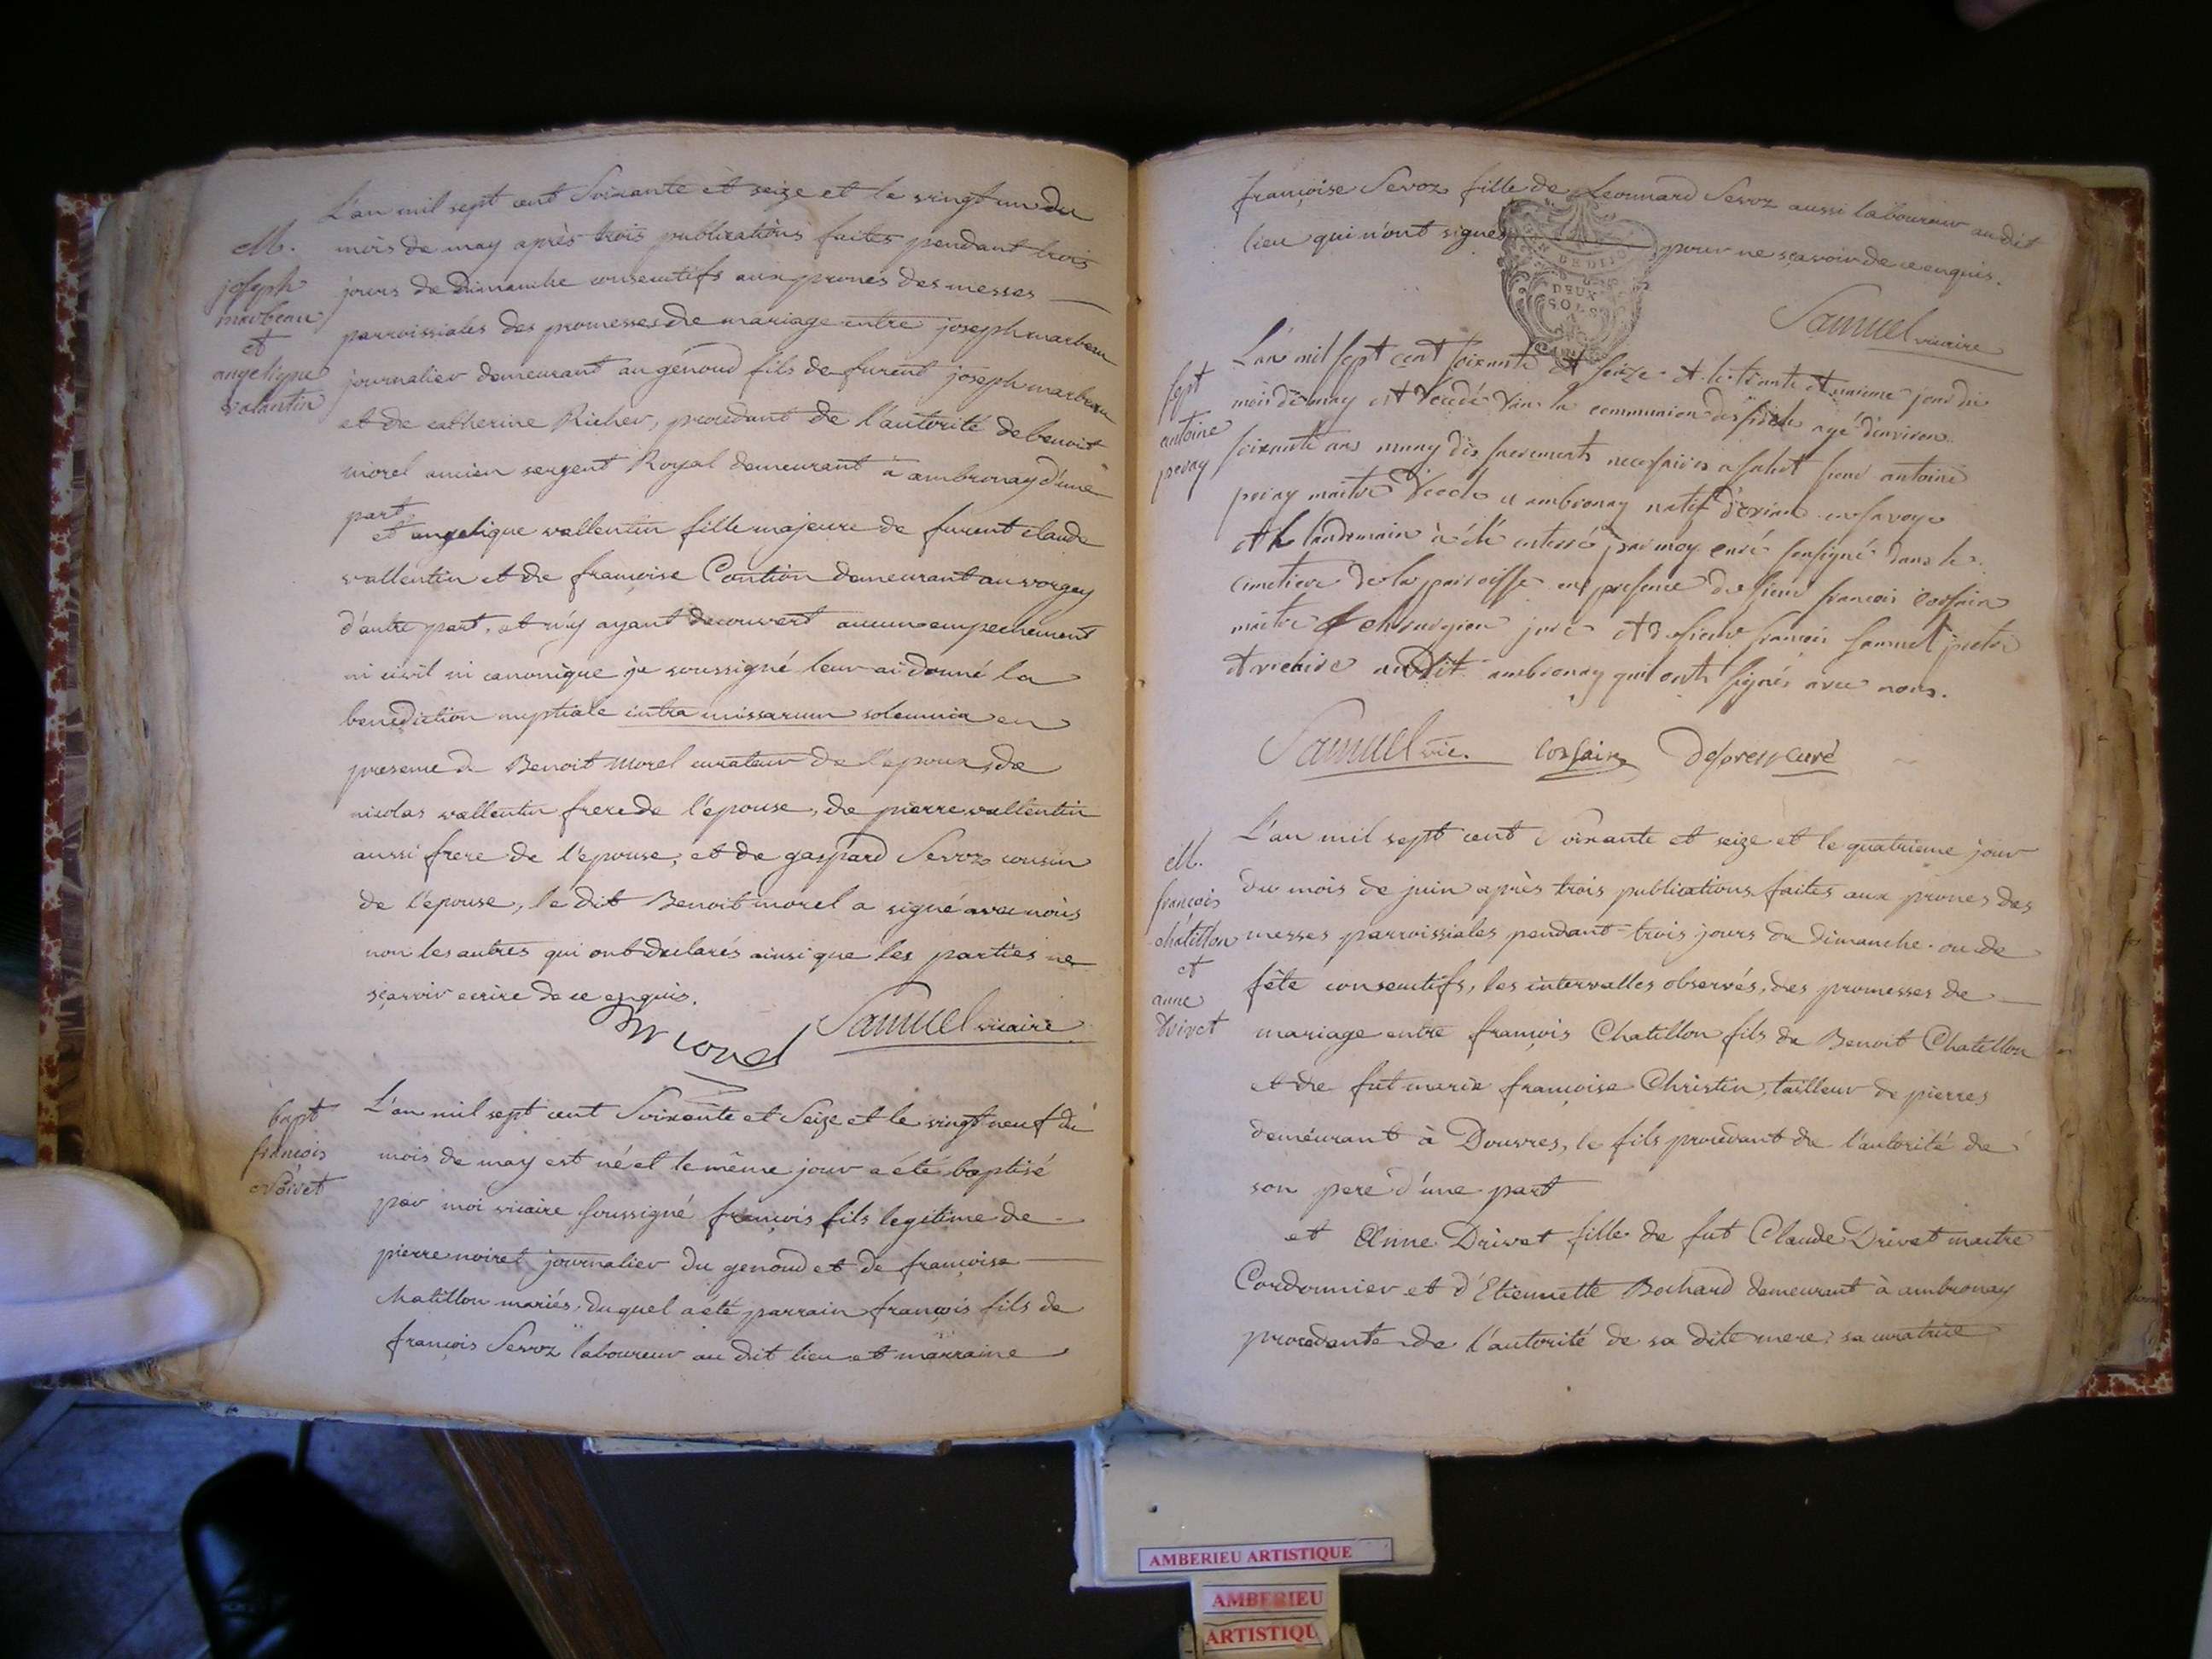 L'an mil sept cent Soixante et seize et le vingt un du
M.
joseph
marbeau
et
angelique
valantin
mois de may après trois publications faites pendant trois
jours de dimanche consecutifs aux prones des messes
parroissiales des promesses de mariage entre joseph marbeau
journalier demeurant au génoud fils de furent joseph marbeau
et de catherine Richer, procedant de l'autorité de benoit
morel ancien sergent Royal demeurant a ambronay d'une
part
et angelique vallentin fille majeure de furent claude
vallentin et de françoise Contion demeurant au vorgey
d'autre part, et n'y ayant decouvert aucun empechement
ni civil ni canonique je soussigné leur ai donné la
benediction nuptiale intra missarum solemnia en
presence de Benoit Morel curateur de l'epoux, de
nicolas vallentin frere de l'épouse, de pierre vallentin
aussi frere de l'epouse, et de gaspard Servoz cousin
de l'epouse, le dit Benoit morel a signé avec nous
non les autres qui ont declarés ainsi que les parties ne
sçavoir ecrire de ce enquis.
Morel Samuel vicaire
bapt
françois
Noiret
L'an mil sept cent Soixante et Seize et le vingt neuf du
mois de may est né et le même jour a été baptisé
par moi vicaire soussigné françois fils legitime de
pierre noiret journalier du genoud et de françoise
Chatillon mariés, duquel a été parrain françois fils de
françois Servoz laboureur au dit lieu et marraine
françoise Servoz fille de Leonnard Servoz aussi laboureur au dit
lieu qui n'ont signés pour ne sçavoir de ce enquis.
DEUX
SOLS
Samuel vicaire
sept
antoine
peray
L'an mil sept cent soixante et seize et le trante et unieme jour du
mois de may est decedé dans la communion des fidels agé d'environ
soixante ans muny des sacrements necessaires a salut sieur antoine
peray maitre d'ecole a ambronay natif d'evian en savoye
et le landemain à été enterré par moy curé sousigné dans le
cimetiere de la paroisse en presence de sieur francois cossain
maitre chirurgien juré et de sieur francois Samuel pretre
et vicaire audit ambronay qui ont signés avec nous.
Samuel vic. Cossain Desprez curé
M.
francois
châtillon
et
anne
drivet
L'an mil sept cent soixante et seize et le quatrieme jour
du mois de juin après trois publications faites aux prones des
messes parroissiales pendant trois jours de dimanche ou de
fête consecutifs, les intervalles observés, des promesses de
mariage entre françois Chatillon fils de Benoit Chatillon
et de fut marie françoise Christin, tailleur de pierres
demeurant à Douvres, le fils procedant de l'autorité de
son pere d'une part
et Anne Drivet fille de fut Claude Drivet maitre
Cordonnier et d'Etiennette Bochard demeurant à ambronay
procedante de l'autorité de sa dite mere, sa curatrice
AMBERIEU ARTISTIQUE
AMBERIEU
ARTISTIQU